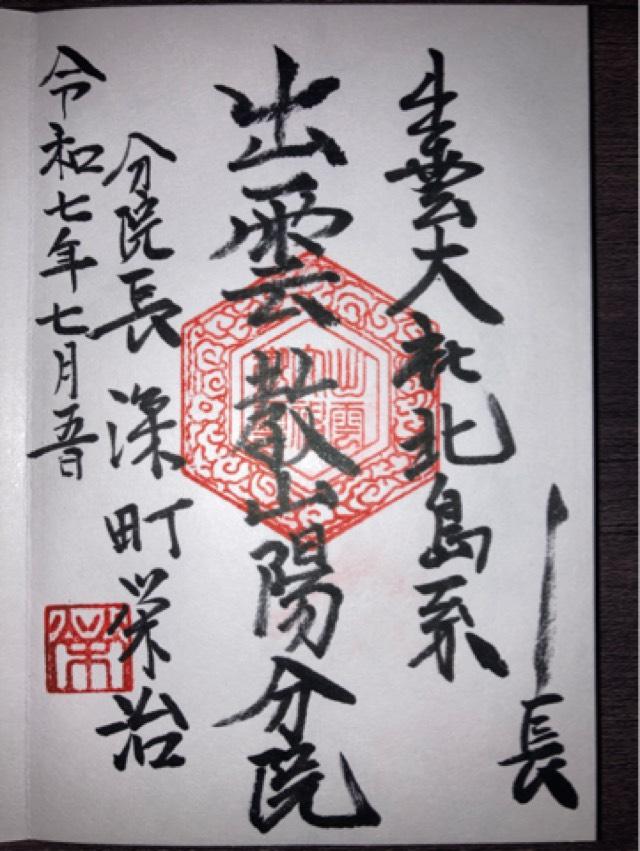 出雲大社北島系
出雲教山陽分院
分院長 深町栄治
令和七年七月五日
長
出雲
栄